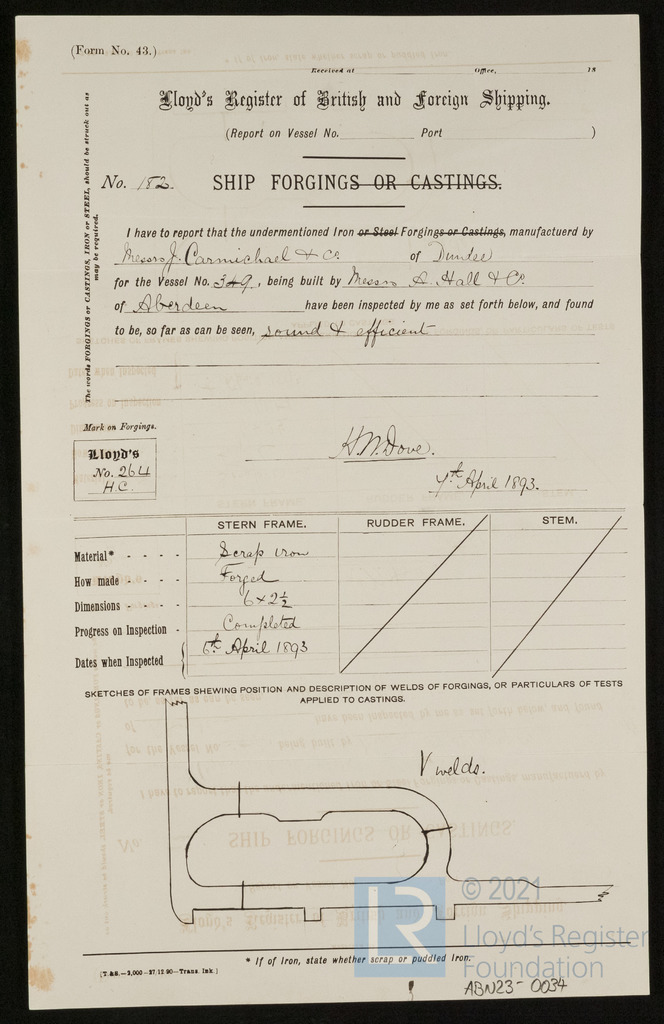 (Form No. 43.)
Received at Office, 18
Lloyd's Register of British and Foreign Shipping.
(Report on Vessel No. Port )
The words FORGINGS or CASTINGS, IRON or STEEL, should be struck out as
may be required.
No. 182. SHIP FORGINGS OR CASTINGS.
I have to report that the undermentioned Iron or Steel Forgings or Castings, manufactuerd by
Messrs J. Carmichael & Co. of Dundee
for the Vessel No. 349, being built by Messrs A. Hall & Co.
of Aberdeen have been inspected by me as set forth below, and found
to be, so far as can be seen, sound & efficient
Mark on Forgings.
Lloyd's
No. 264
H.C.
H.W. Dove.
7th April 1893.
STERN FRAME. RUDDER FRAME. STEM.
Material* - - - - Scrap iron
How made - - - - Forged
Dimensions - - - - 6 x 2½
Progress on Inspection - Completed
Dates when Inspected 6th April 1893
SKETCHES OF FRAMES SHEWING POSITION AND DESCRIPTION OF WELDS OF FORGINGS, OR PARTICULARS OF TESTS
APPLIED TO CASTINGS.
V welds.
* If of Iron, state whether scrap or puddled Iron.
(T.&S.—2,000—27.12.90—Trans. Ink.)
© 2021
LR
Lloyd's Register
Foundation
ABN23-0034